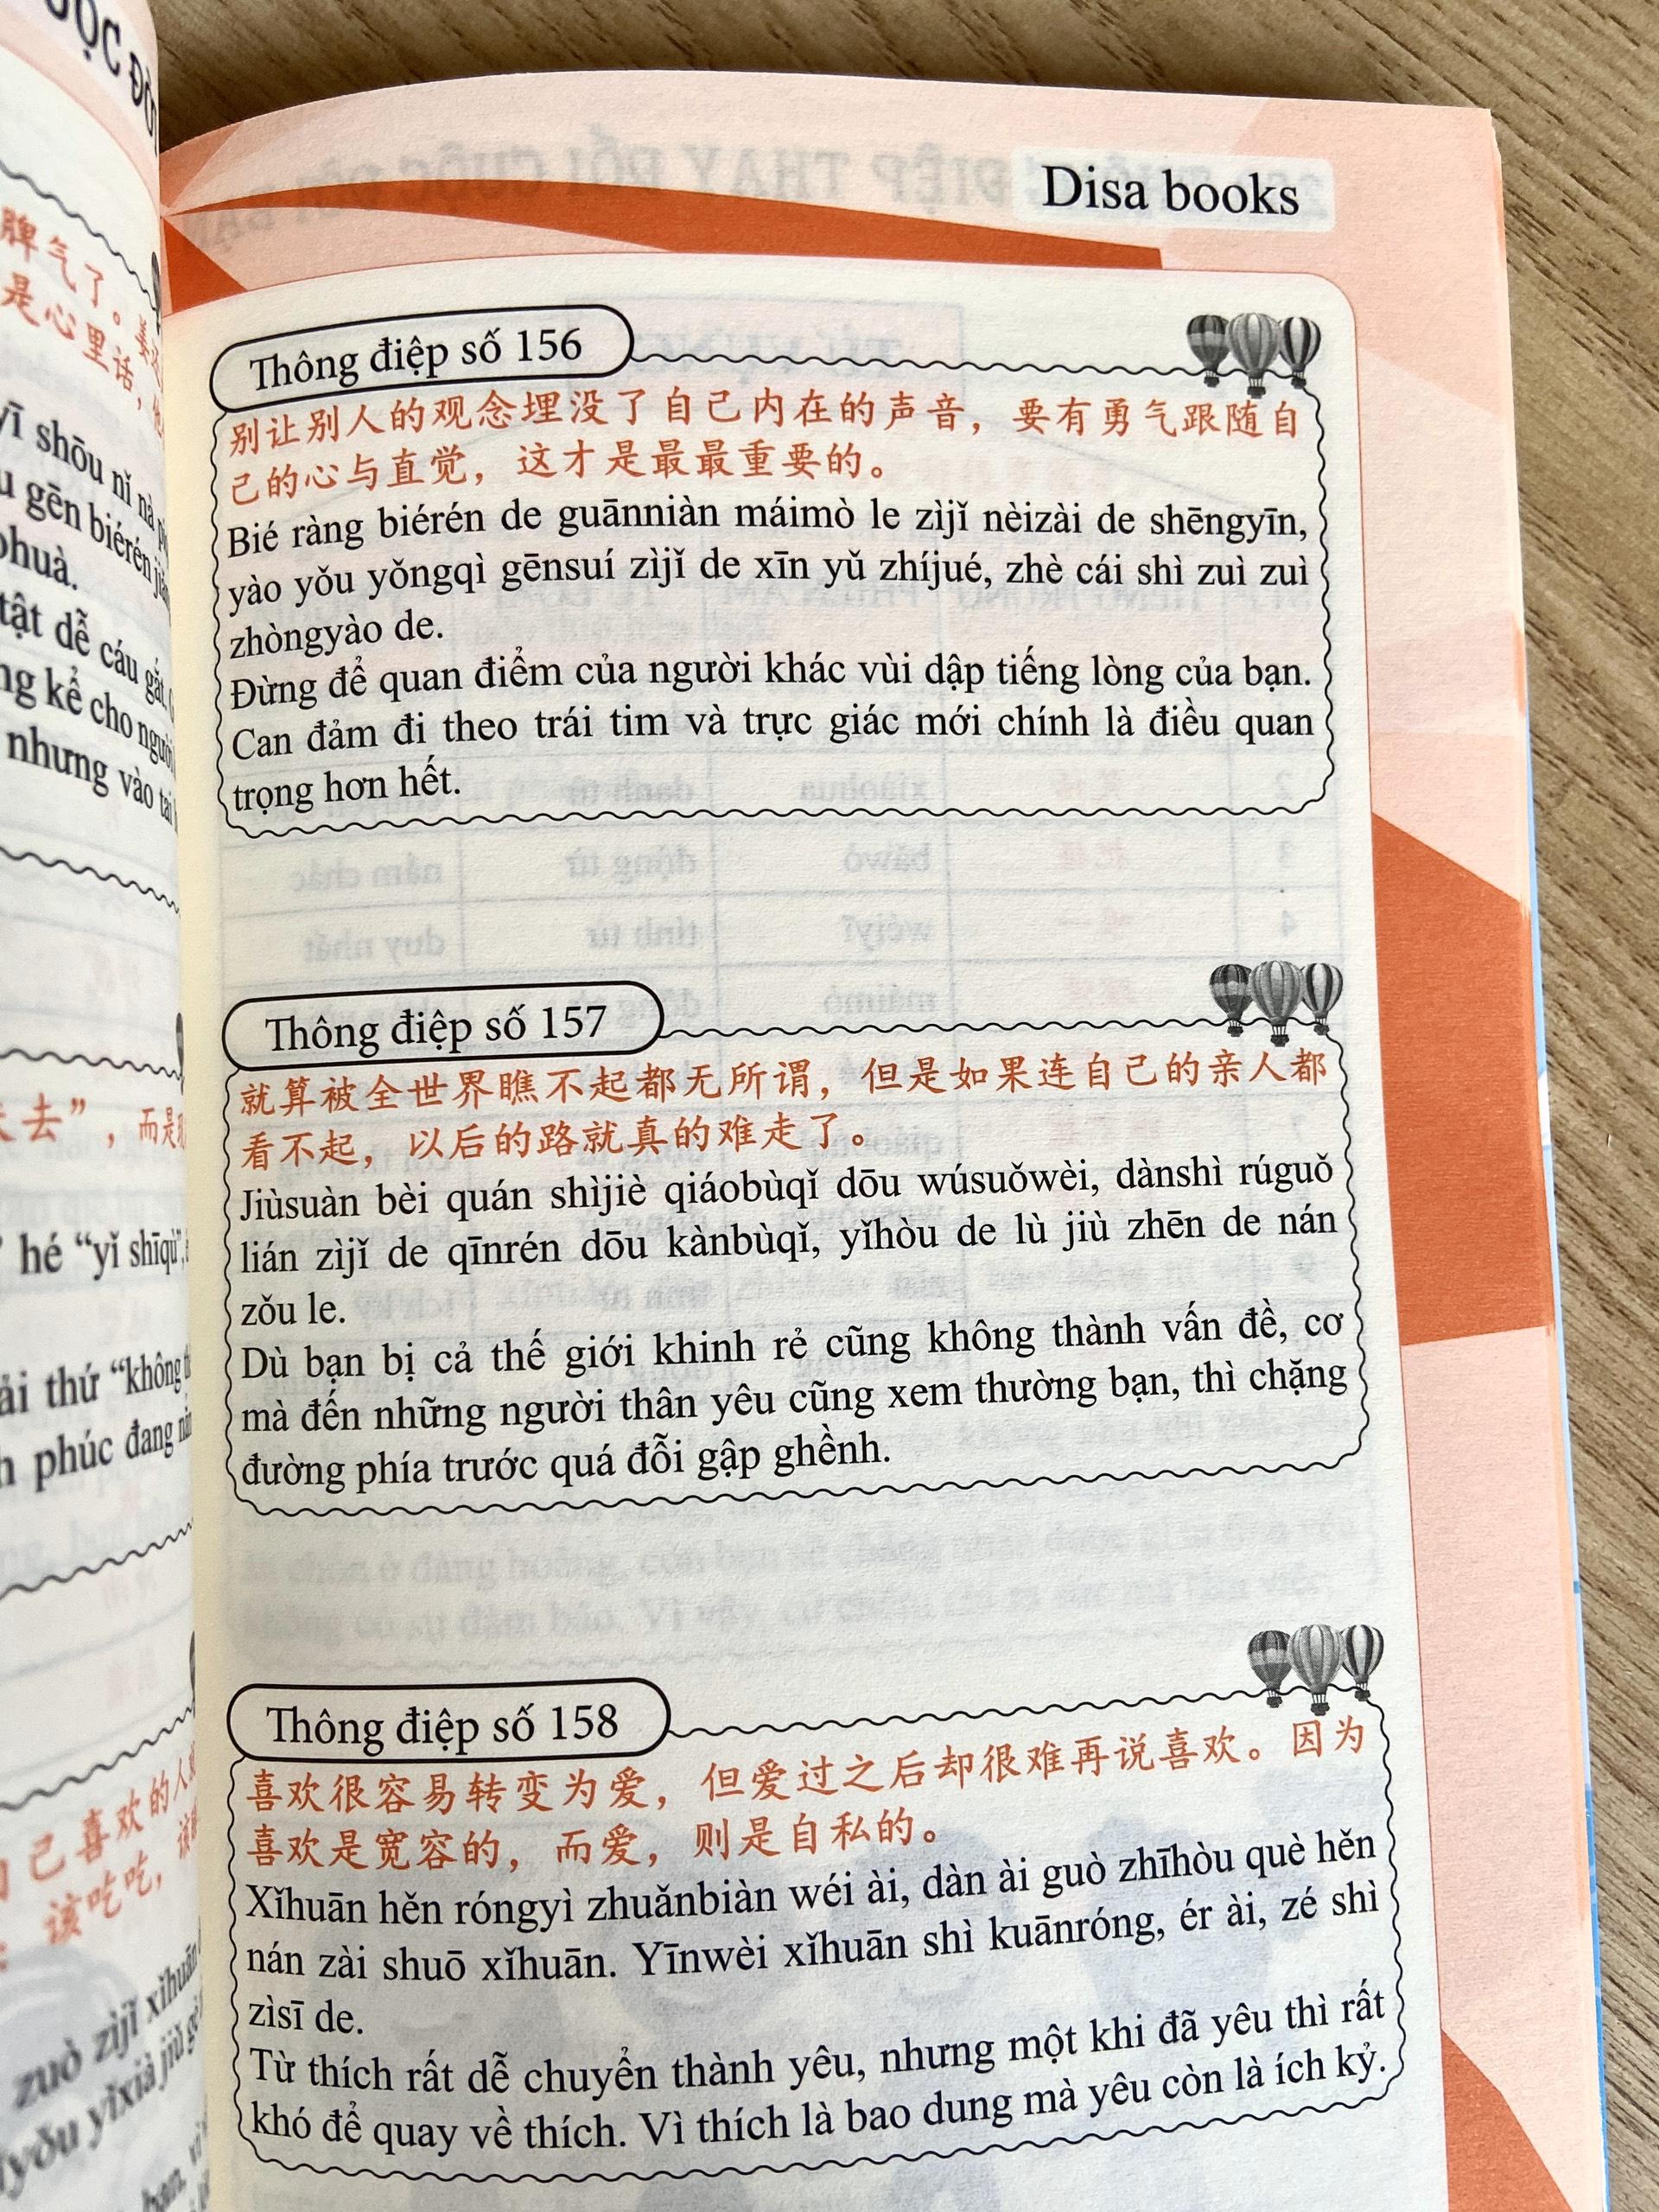 ỘC ĐỜI
脾气了。
是心里话，
yī shōu nǐ nà
gēn biérén
ohuà.
tật dễ cáu gắt
ng kể cho người
nhưng vào tai
去”，而是
hé “yǐ shīqù”,
ải thứ “không
h phúc đang
己喜欢的人
该吃吃，
zuò zìjǐ xǐhuān
yǒu yìxià jiù
Disa books
Thông điệp số 156
别让别人的观念埋没了自己内在的声音，要有勇气跟随自
己的心与直觉，这才是最最重要的。
Bié ràng biérén de guānniàn máimò le zìjǐ nèizài de shēngyīn,
yào yǒu yǒngqì gēnsuí zìjǐ de xīn yǔ zhíjué, zhè cái shì zuì zuì
zhòngyào de.
Đừng để quan điểm của người khác vùi dập tiếng lòng của bạn.
Can đảm đi theo trái tim và trực giác mới chính là điều quan
trọng hơn hết.
Thông điệp số 157
就算被全世界瞧不起都无所谓，但是如果连自己的亲人都
看不起，以后的路就真的难走了。
Jiùsuàn bèi quán shìjiè qiáobùqǐ dōu wúsuǒwèi, dànshì rúguǒ
lián zìjǐ de qīnrén dōu kànbùqǐ, yǐhòu de lù jiù zhēn de nán
zǒu le.
Dù bạn bị cả thế giới khinh rẻ cũng không thành vấn đề, cơ
mà đến những người thân yêu cũng xem thường bạn, thì chặng
đường phía trước quá đỗi gập ghềnh.
Thông điệp số 158
喜欢很容易转变为爱，但爱过之后却很难再说喜欢。因为
喜欢是宽容的，而爱，则是自私的。
Xǐhuān hěn róngyì zhuǎnbiàn wéi ài, dàn ài guò zhīhòu què hěn
nán zài shuō xǐhuān. Yīnwèi xǐhuān shì kuānróng, ér ài, zé shì
zìsī de.
Từ thích rất dễ chuyển thành yêu, nhưng một khi đã yêu thì rất
khó để quay về thích. Vì thích là bao dung mà yêu còn là ích kỷ.